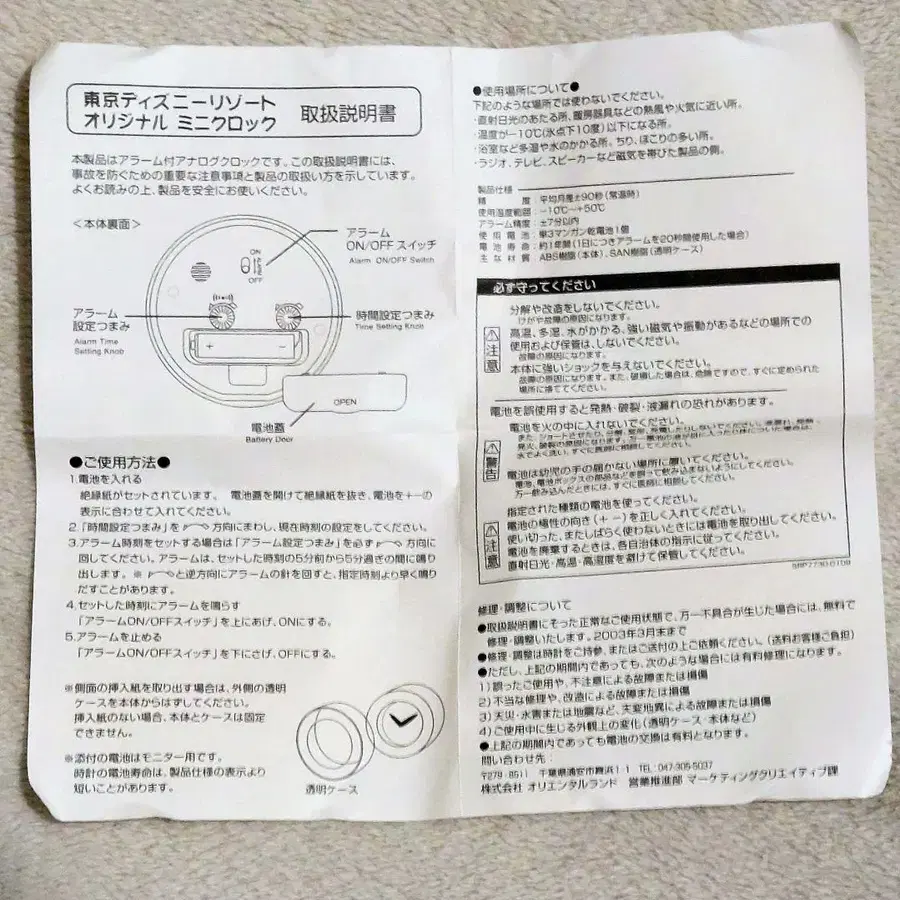 東京ディズニーリゾート
オリジナル ミニクロック
取扱説明書
本製品はアラーム付アナログクロックです。この取扱説明書には、
事故を防ぐための重要な注意事項と製品の取扱い方を示しています。
よくお読みの上、製品を安全にお使いください。
<本体裏面>
アラーム
ON/OFF スイッチ
Alarm ON/OFF Switch
ON
OFF
アラーム
設定つまみ
Alarm Time
Setting Knob
時間設定つまみ
Time Setting Knob
+
−
OPEN
電池蓋
Battery Door
●ご使用方法●
1.電池を入れる
絶縁紙がセットされています。 電池蓋を開けて絶縁紙を抜き、電池を+−の
表示に合わせて入れてください。
2.「時間設定つまみ」を 方向にまわし、現在時刻の設定をしてください。
3.アラーム時刻をセットする場合は「アラーム設定つまみ」を必ず 方向に
回してください。アラームは、セットした時刻の5分前から5分過ぎの間に鳴り
出します。※ と逆方向にアラームの針を回すと、指定時刻より早く鳴り
だすことがあります。
4.セットした時刻にアラームを鳴らす
「アラームON/OFFスイッチ」を上にあげ、ONにする。
5.アラームを止める
「アラームON/OFFスイッチ」を下にさげ、OFFにする。
※側面の挿入紙を取り出す場合は、外側の透明
ケースを本体からはずしてください。
挿入紙のない場合、本体とケースは固定
できません。
※添付の電池はモニター用です。
時計の電池寿命は、製品仕様の表示より
短いことがあります。
透明ケース
●使用場所について●
下記のような場所では使わないでください。
・直射日光のあたる所、暖房器具などの熱風や火気に近い所。
・温度が−10℃(氷点下10度)以下になる所。
・浴室など多湿や水のかかる所。ちり、ほこりの多い所。
・ラジオ、テレビ、スピーカーなど磁気を帯びた製品の側。
製品仕様
精度:平均月差±90秒(常温時)
使用温度範囲:−10℃〜+50℃
アラーム精度:±7分以内
使用電池:単3マンガン乾電池1個
電池寿命:約1年間(1日につきアラームを20秒間使用した場合)
主な材質:ABS樹脂(本体)、SAN樹脂(透明ケース)
必ず守ってください
分解や改造をしないでください。
けがや故障の原因になります。
注意
高温、多湿、水がかかる、強い磁気や振動があるなどの場所での
使用および保管は、しないでください。
故障の原因になります。
本体に強いショックを与えないでください。
故障の原因になります。また、破損した場合は、危険ですので、すぐに定められた
場所に捨ててください。
電池を誤使用すると発熱・破裂・液漏れの恐れがあります。
電池を火の中に入れないでください。
警告
電池は幼児の手の届かない場所に置いてください。
電池、電池ボックスの部品などを誤って飲み込まないようにしてください。
万一飲み込んだときには、すぐに医師に相談してください。
指定された種類の電池を使ってください。
注意
電池の極性の向き(+−)を正しく入れてください。
使い切った、またしばらく使わないときには電池を取り出してください。
電池を廃棄するときは、各自治体の指示に従ってください。
直射日光・高温・高湿度を避けて保管してください。
修理・調整について
●取扱説明書にそった正常なご使用状態で、万一不具合が生じた場合には、無料で
修理・調整いたします。2003年3月末まで
●修理・調整は時計をご持参、またはご送付の上ご依頼ください。(送料お客様ご負担)
●ただし、上記の期間内であっても、次のような場合には有料修理になります。
1)誤ったご使用や、不注意による故障または損傷
2)不当な修理や、改造による故障または損傷
3)天災・水害または地震など、天変地異による故障または損傷
4)ご使用中に生じる外観上の変化(透明ケース・本体など)
●上記の期間内であっても電池の交換は有料となります。
問い合わせ先:
〒279-8511 千葉県浦安市舞浜1-1 TEL:047-305-5037
株式会社 オリエンタルランド 営業推進部 マーケティングクリエイティブ課